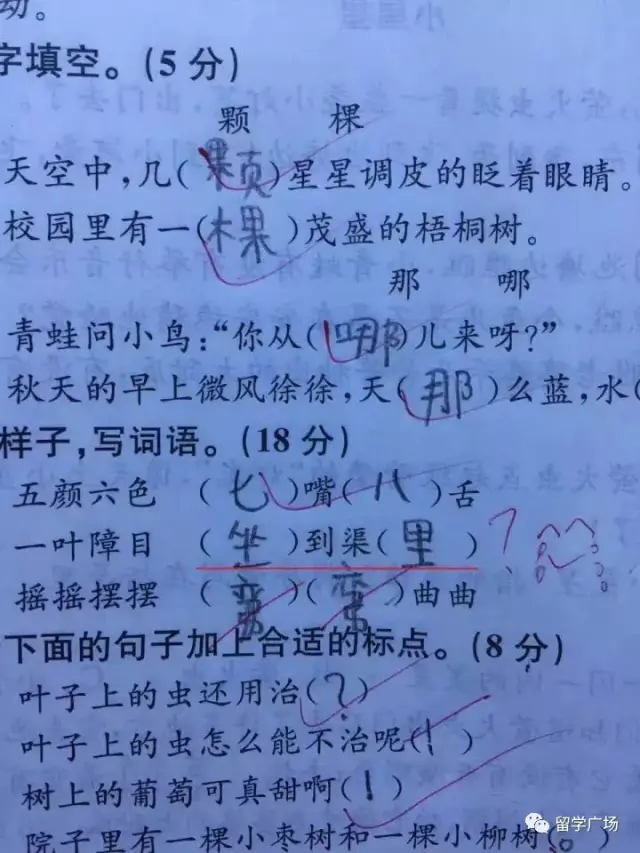 字填空。(5分)
颗 棵
天空中,几(颗)星星调皮的眨着眼睛。
校园里有一(棵)茂盛的梧桐树。
那 哪
青蛙问小鸟:“你从(哪)儿来呀?”
秋天的早上微风徐徐,天(那)么蓝,水(
样子,写词语。(18分)
五颜六色 (七)嘴(八)舌
一叶障目 (坐)到渠(里) ?
摇摇摆摆 (弯)(弯)曲曲
下面的句子加上合适的标点。(8分)
叶子上的虫还用治(?)
叶子上的虫怎么能不治呢(!)
树上的葡萄可真甜啊(!)
院子里有一棵小枣树和一棵小柳树(。)
留学广场